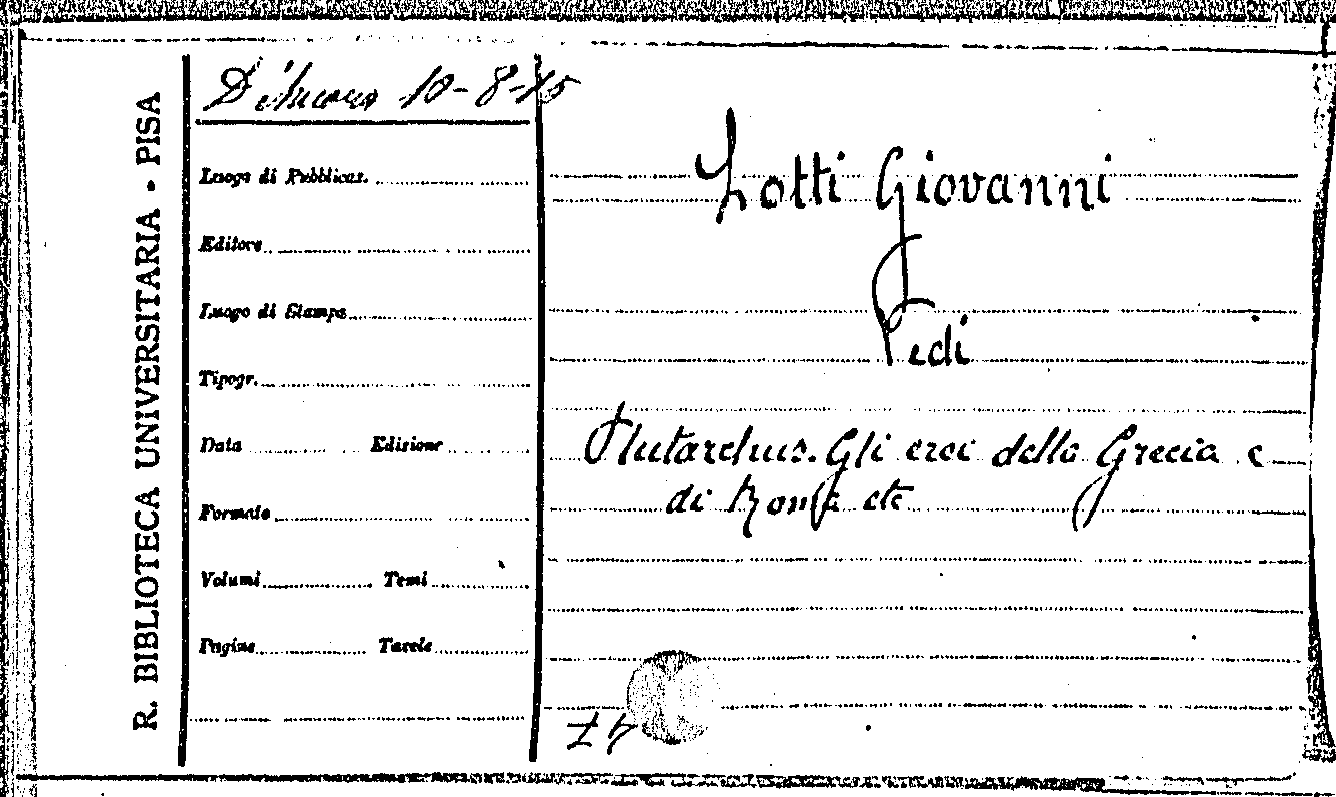 R. BIBLIOTECA UNIVERSITARIA - PISA
10-8-15
Luogo di Pubblicaz.
Editore
Luogo di Stampa
Tipogr.
Data Edizione
Formato
Volumi Tomi
Pagine Tavole
Lotti Giovanni
Vedi
Plutarchus. Gli eroi della Grecia e
di Roma etc